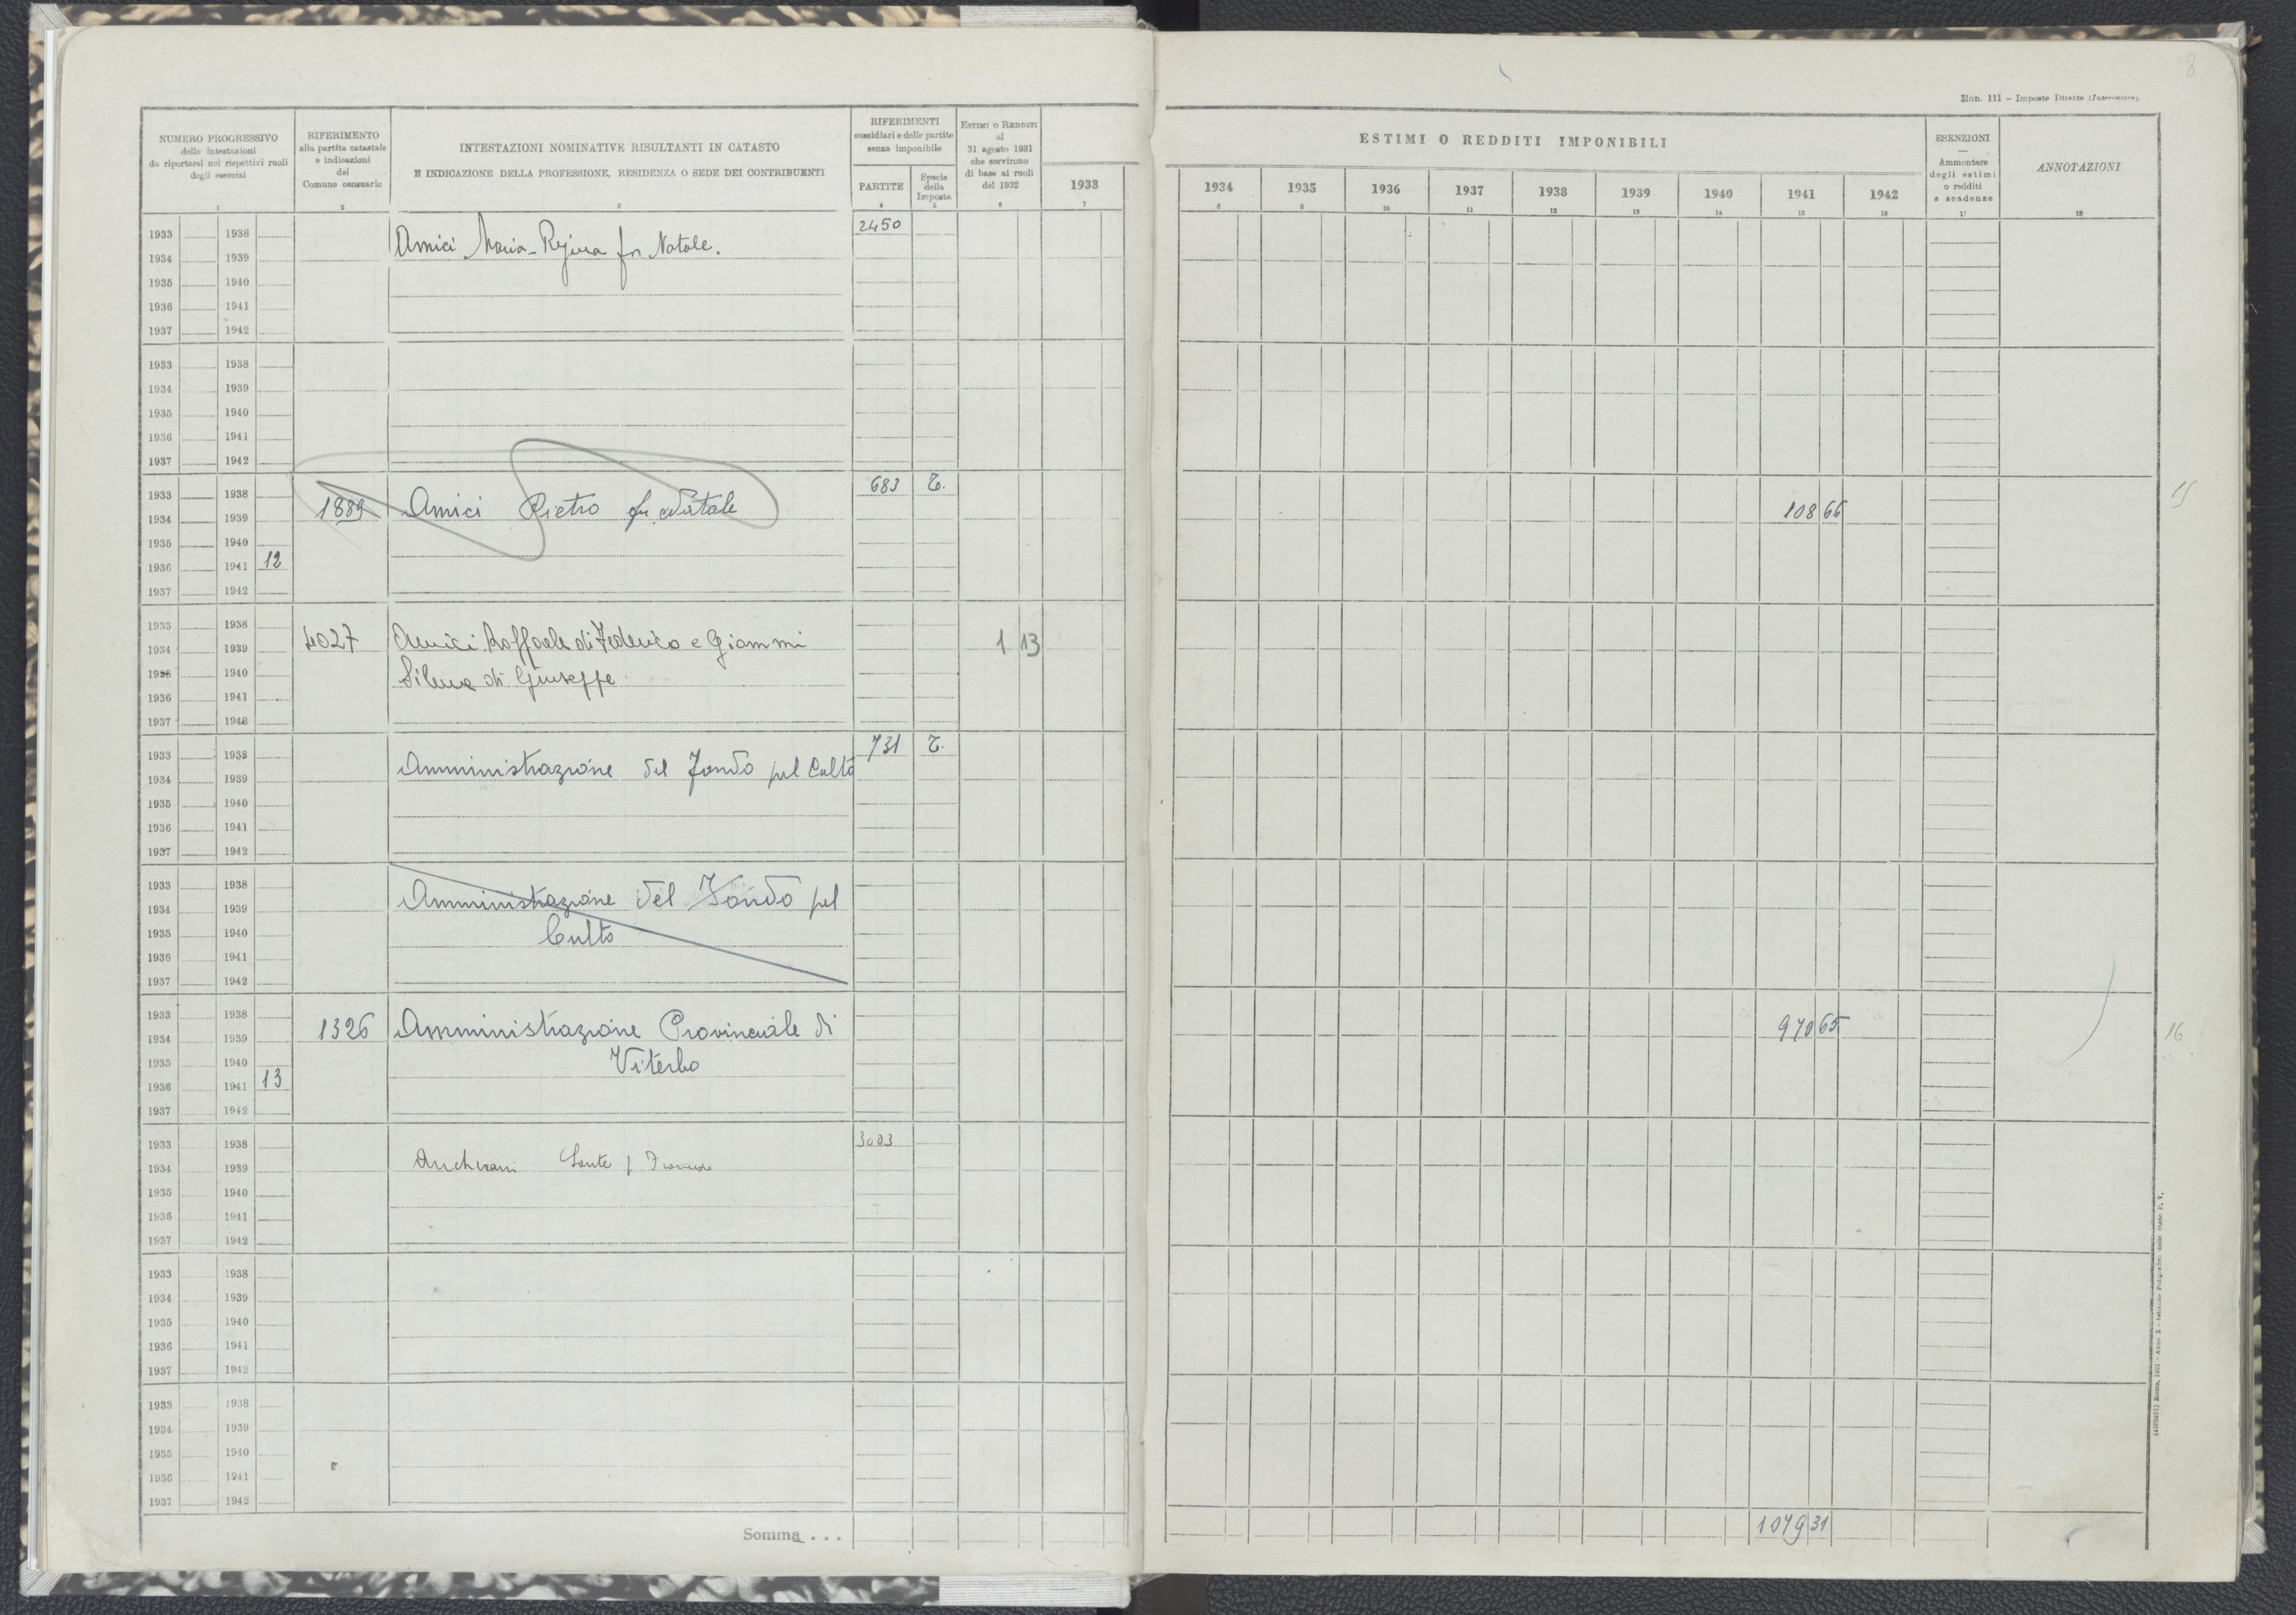 8
Mod. 111 - Imposte Dirette (Intercalare).
NUMERO PROGRESSIVO
delle intestazioni
da riportarsi nei rispettivi ruoli
degli esercizi
1
RIFERIMENTO
alla partita catastale
e indicazioni
del
Comune censuario
2
INTESTAZIONI NOMINATIVE RISULTANTI IN CATASTO
E INDICAZIONE DELLA PROFESSIONE, RESIDENZA O SEDE DEI CONTRIBUENTI
3
RIFERIMENTI
sussidiari e delle partite
senza imponibile
PARTITE
4
Specie
della
Imposta
5
ESTIMI O REDDITI
al
31 agosto 1931
che servirono
di base ai ruoli
del 1932
6
1933
7
ESTIMI O REDDITI IMPONIBILI
1934 1935 1936 1937 1938 1939 1940 1941 1942
8 9 10 11 12 13 14 15 16
ESENZIONI
—
Ammontare
degli estimi
o redditi
e scadenze
17
ANNOTAZIONI
18
1933 1938 2450
Amici Maria-Regina fu Natale.
1934 1939
1935 1940
1936 1941
1937 1942
1933 1938
1934 1939
1935 1940
1936 1941
1937 1942
1933 1938 683 T.
1889 Amici Pietro fu Natale 108 66 15
1934 1939
1935 1940
1936 1941 12
1937 1942
1933 1938
4027 Amici Raffaele di Federico e Giammi 1 13
1934 1939
1935 1940
di Giuseppe
1936 1941
1937 1942
1933 1938 731 T.
Amministrazione del Fondo pel Culto
1934 1939
1935 1940
1936 1941
1937 1942
1933 1938
Amministrazione del Fondo pel
1934 1939
1935 1940
Culto
1936 1941
1937 1942
1933 1938
1326 Amministrazione Provinciale di 970 65 16
1934 1939
1935 1940
Viterbo
1936 1941 13
1937 1942
1933 1938 3003
Ancherani Sante f
1934 1939
1935 1940
1936 1941
1937 1942
1933 1938
1934 1939
1935 1940
1936 1941
1937 1942
1933 1938
1934 1939
1935 1940
1936 1941
1937 1942
Somma . . . 1079 31